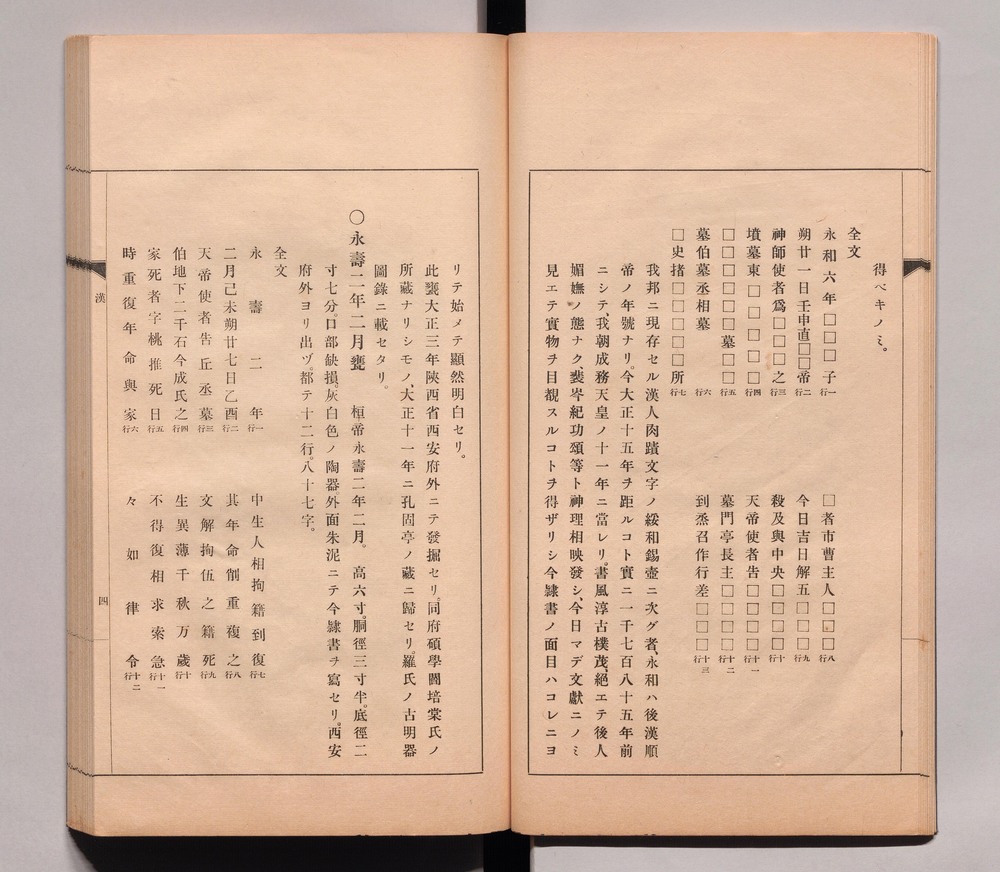 得ベキノミ。
全文
永和六年□□□子 行一
朔廿一日壬申直□□帝 行二
神師使者爲□□□之 行三
墳墓東□□□□ 行四
□□□□墓□□ 行五
墓伯墓丞相墓 行六
□史㨋□□□□□所 行七
□者市曹主人□□□ 行八
今日吉日解五□□□ 行九
殺及與中央□□□□ 行十
天帝使者告□□□□ 行十一
墓門亭長主□□□□ 行十二
到烝召作行差□□□ 行十三
我邦ニ現存セル漢人肉蹟文字ノ綏和錫壺ニ次グ者、永和ハ後漢順
帝ノ年號ナリ。今大正十五年ヲ距ルコト實ニ一千七百八十五年前
ニシテ、我朝成務天皇ノ十一年ニ當レリ。書風淳古樸茂、絕エテ後人
媚嫵ノ態ナク、裴岑紀功頌等ト神理相映發シ、今日マデ文獻ニノミ
見エテ實物ヲ目覩スルコトヲ得ザリシ今隷書ノ面目ハコレニヨ
リテ始メテ顯然明白セリ。
此甕大正三年陝西省西安府外ニテ發掘セリ。同府碩學閻培棠氏ノ
所藏ナリシモノ、大正十一年ニ孔固亭ノ藏ニ歸セリ。羅氏ノ古明器
圖錄ニ載セタリ。
〇永壽二年二月甕 桓帝永壽二年二月。 高六寸。胴徑三寸半。底徑二
寸七分。口部缺損。灰白色ノ陶器。外面朱泥ニテ今隷書ヲ寫セリ。西安
府外ヨリ出ヅ。都テ十二行。八十七字。
全文
永壽二年 行一
二月己未朔廿七日乙酉 行二
天帝使者告丘丞墓 行三
伯地下二千石今成氏之 行四
家死者字桃推死日 行五
時重復年命與家 行六
中生人相拘籍到復 行七
其年命削重複之 行八
文解拘伍之籍死 行九
生異薄千秋万歲 行十
不得復相求索急 行十一
々如律令 行十二
漢
四